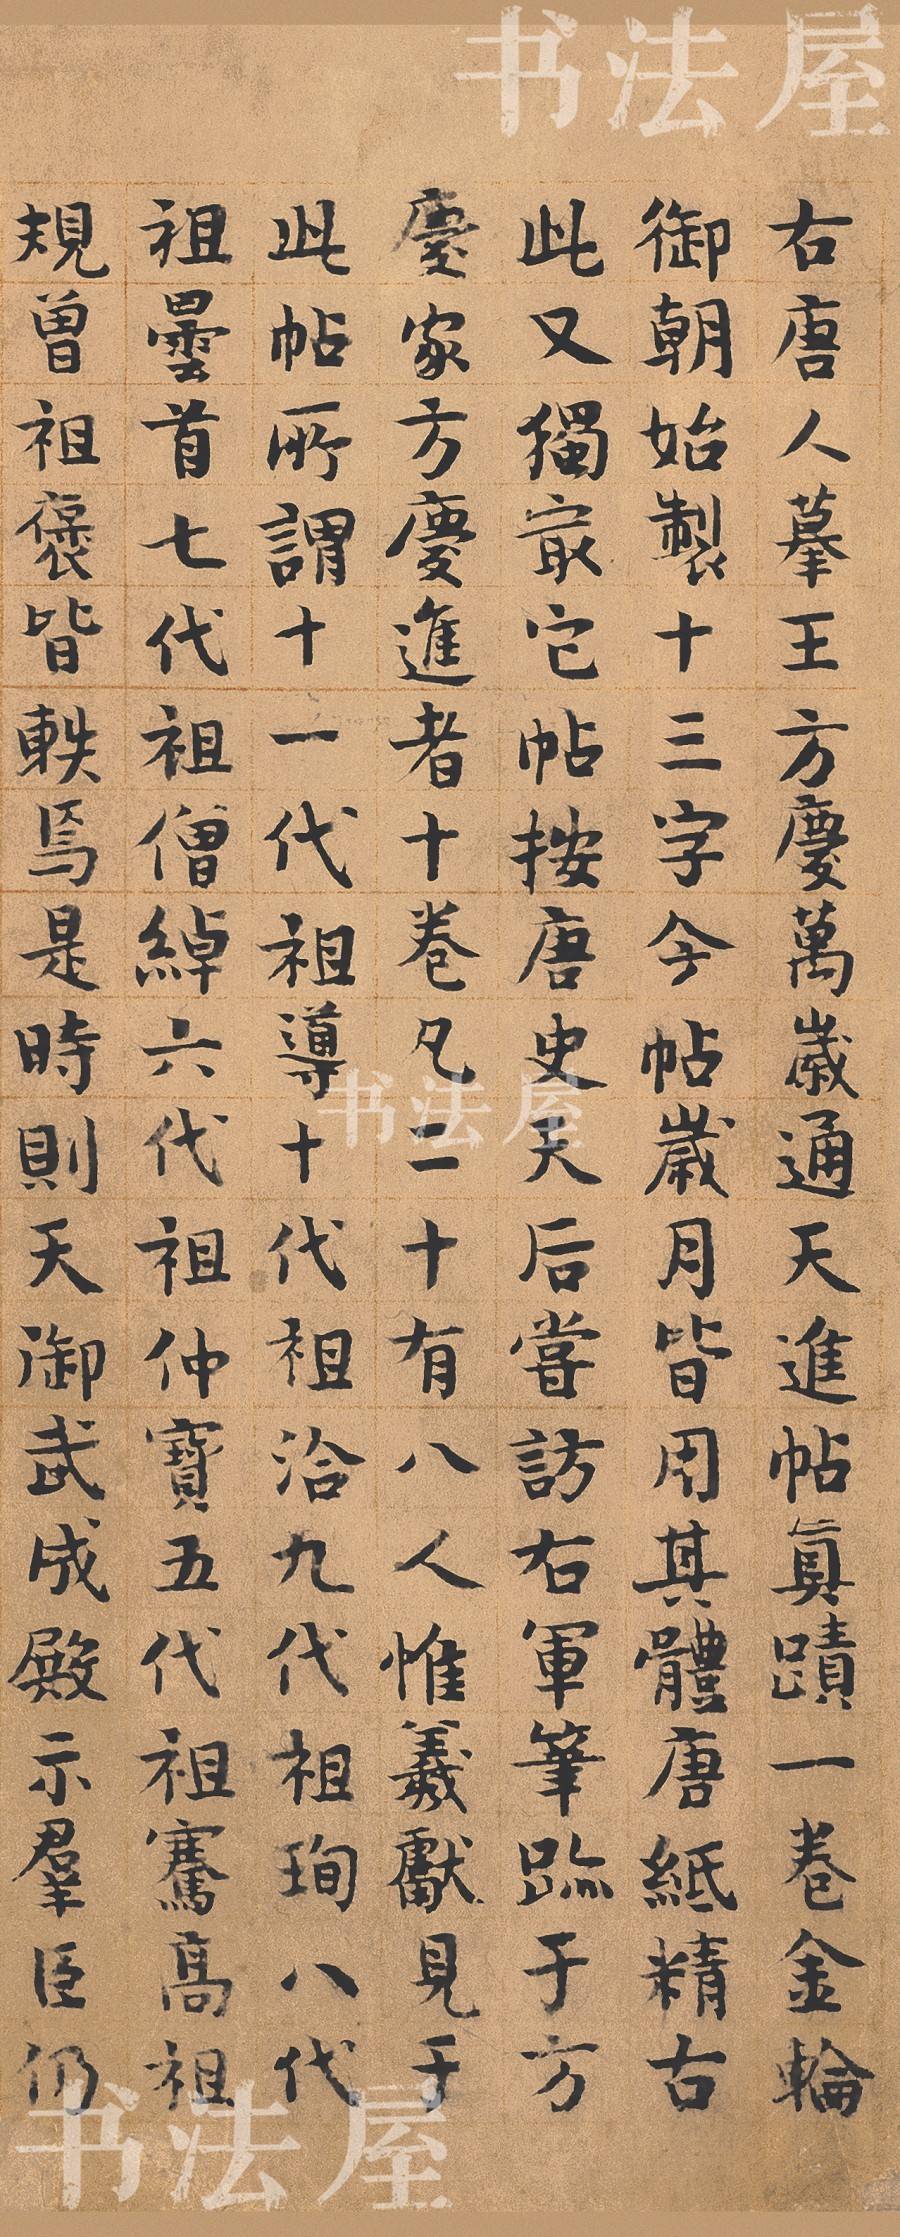 书法屋
右唐人摹王方慶萬歲通天進帖真蹟一卷金輪
御朝始製十三字今帖歲月皆用其體唐紙精古
此又獨冣它帖按唐史天后嘗訪右軍筆跡于方
慶家方慶進者十卷凡二十有八人惟羲獻見于
此帖所謂十一代祖導十代祖洽九代祖珣八代
祖曇首七代祖僧綽六代祖仲寶五代祖騫高祖
規曾祖褒皆軼焉是時則天御武成殿示羣臣仍
书法屋
书法屋